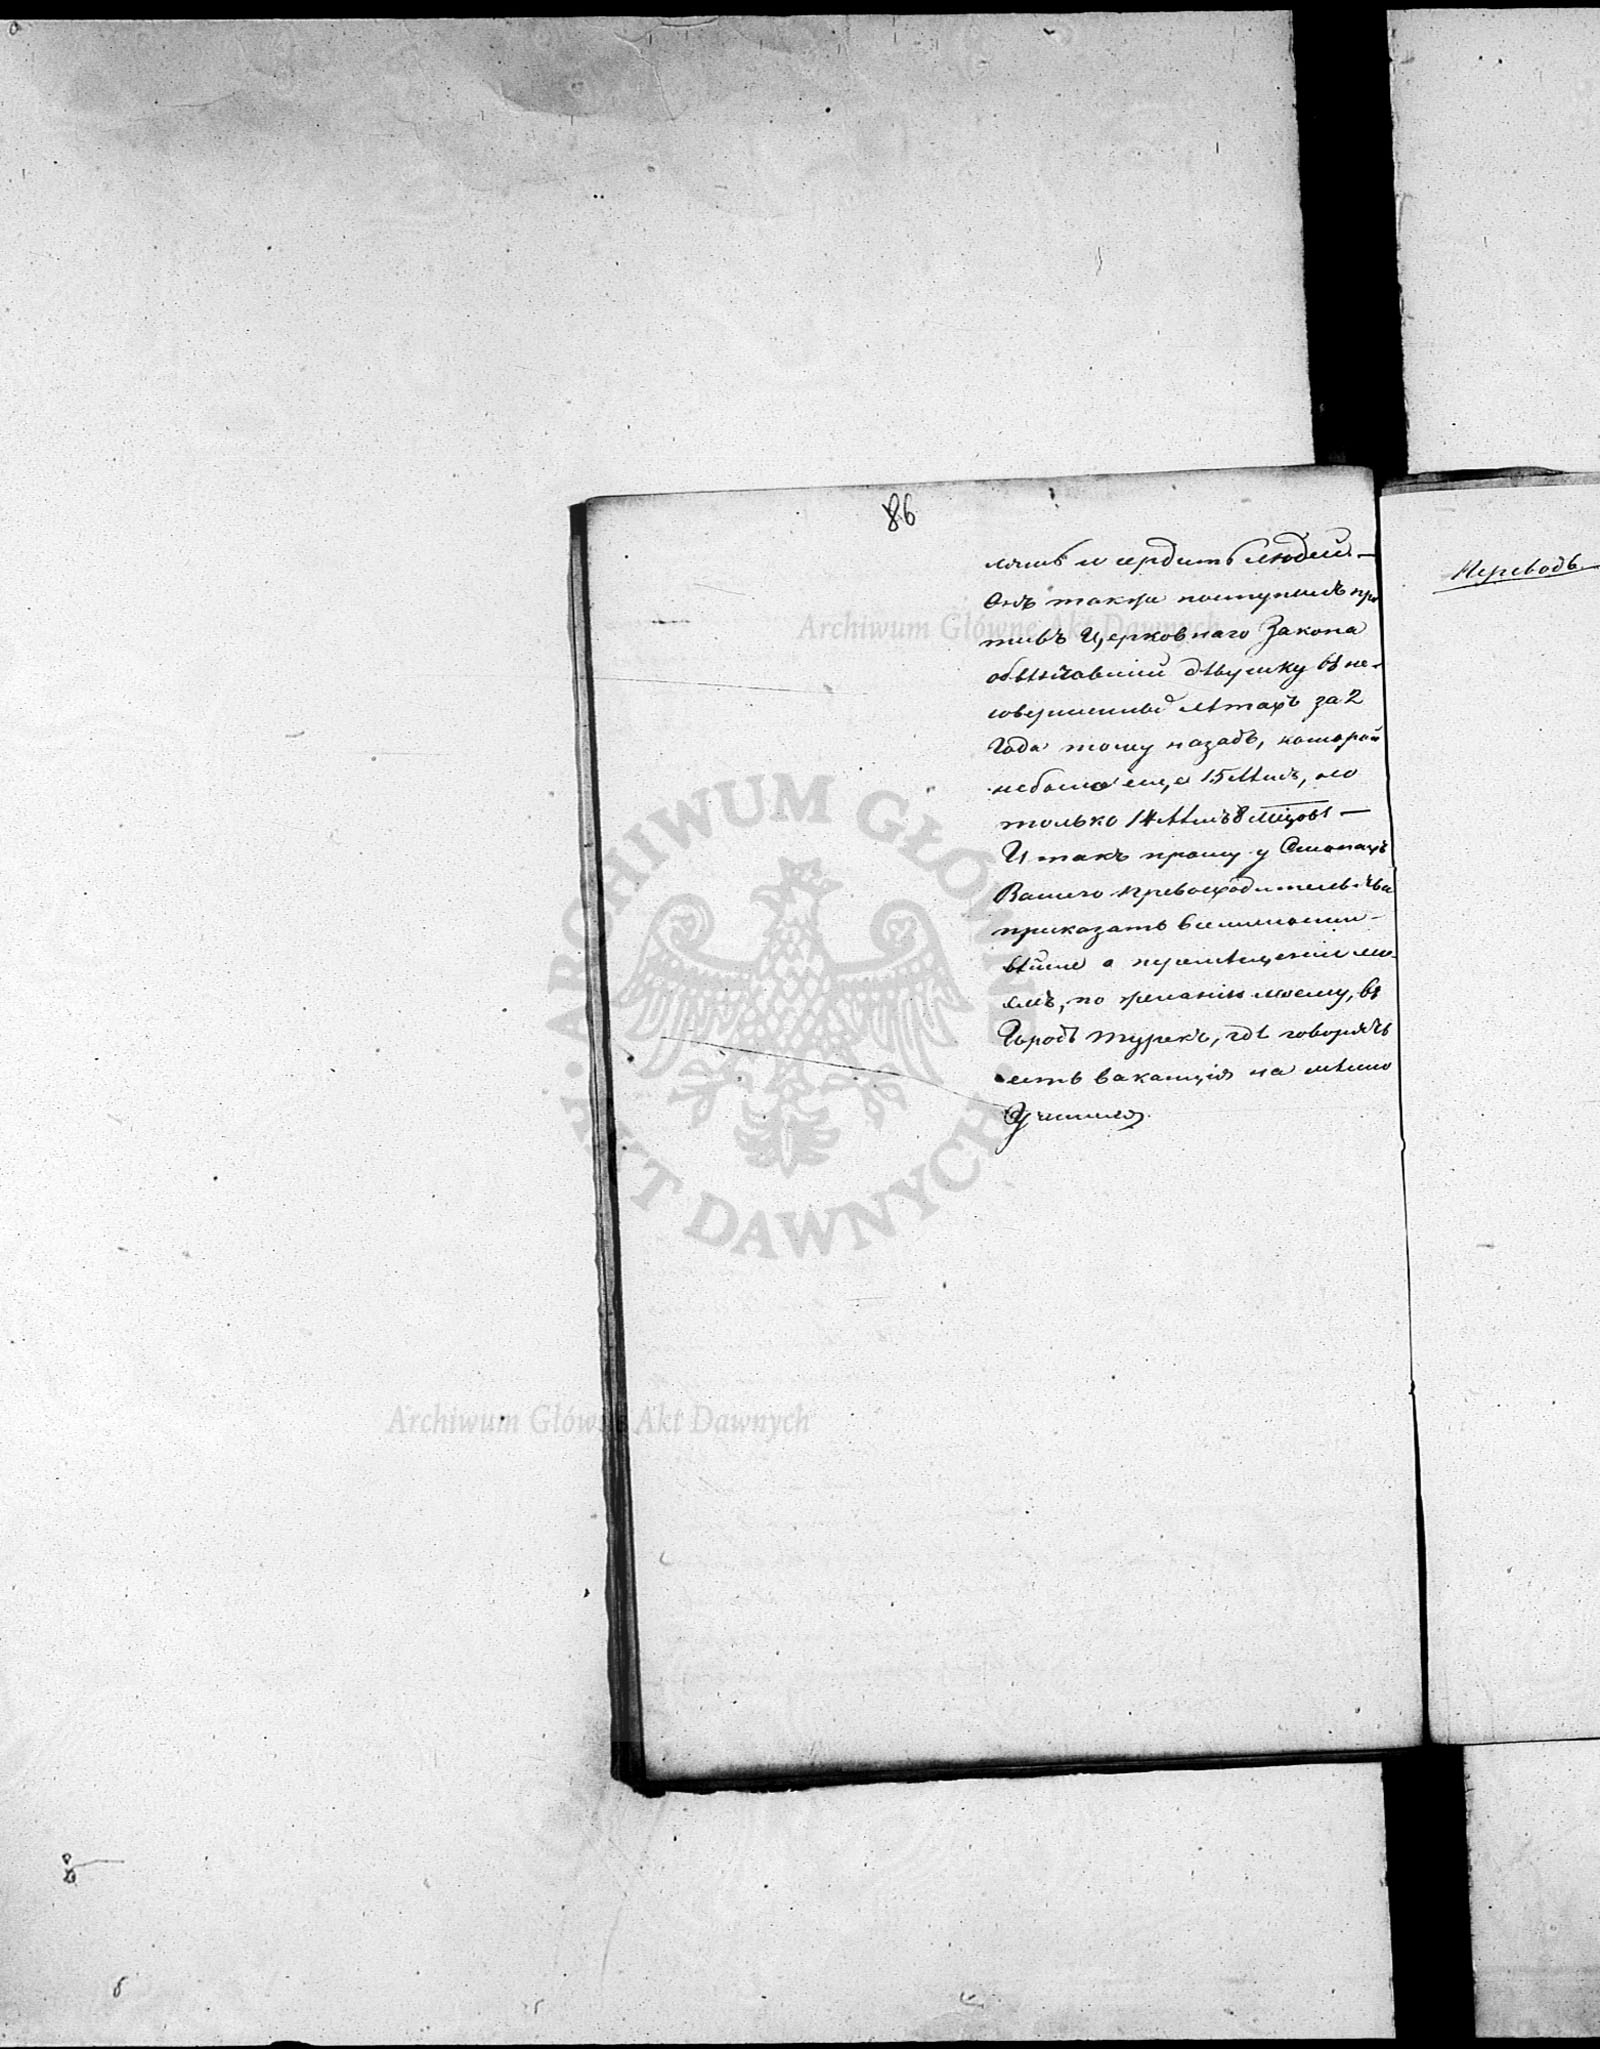 86
и сердить людей. —
Онъ также поступилъ про
тивъ Церковнаго Закона
обвѣнчавший дѣвушку въ не-
совершенныхъ лѣтахъ за 2
года тому назадъ, которой
небыло еще 15 лѣтъ, но
только 14 лѣтъ 8 мѣцовъ —
И такъ прошу у Стопахъ
Вашего Превосходительства
приказать всемилостив-
вѣйше о перемѣщеніи мо-
емъ, по желанію моему, въ
Городъ Турекъ, гдѣ говорятъ
есть вакансія на мѣсто
Учителя.
Переводъ.
Archiwum Główne Akt Dawnych
ARCHIWUM GŁÓWNE AKT DAWNYCH
Archiwum Główne Akt Dawnych